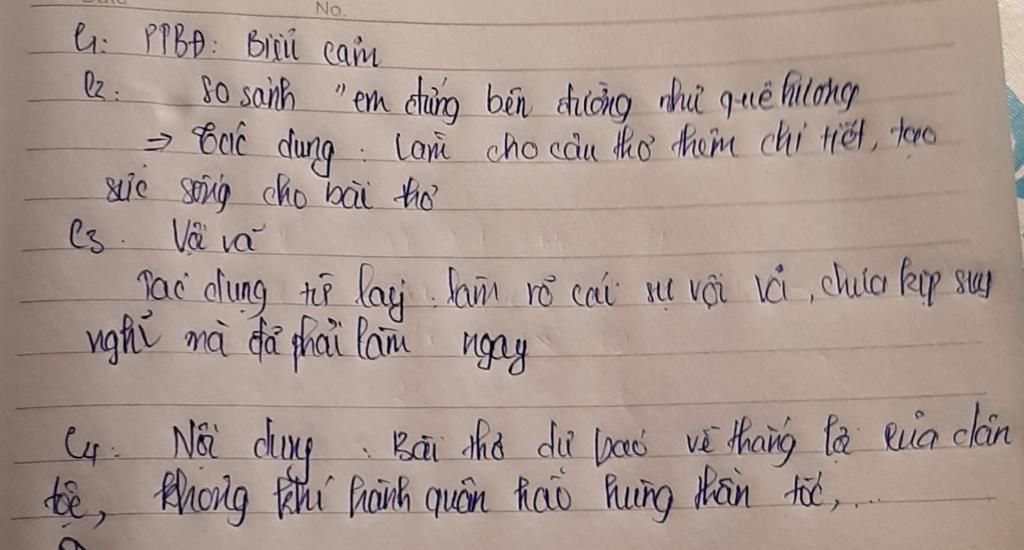 No.
C1: PTBĐ: Biểu cảm
C2: so sánh "em đứng bên đường như quê hương
⇒ Tác dụng: Làm cho câu thơ thêm chi tiết, tạo
sức sống cho bài thơ
C3. Vội vã
Tác dụng từ láy. làm rõ cái sự vội vã, chưa kịp suy
nghĩ mà đã phải làm ngay
C4: Nội dung: Bài thơ dự báo về thắng lợi của dân
tộc, không khí hành quân hào hùng thần tốc,...